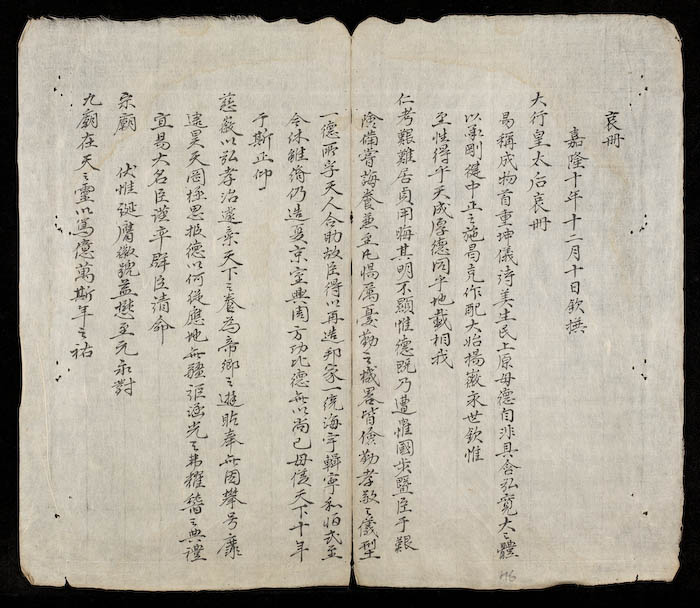 哀冊
嘉隆十年十二月十日欽撰
大行皇太后哀冊
易稱成物首重坤儀詩美生民上原母德自非具含弘寬大之體
以承剛健中正之施曷克作配大始揚徽永世欽惟
至性得乎天成厚德同乎地載相我
仁考艱難居貞用晦其明不顯惟德旣乃遭惟國步臣于艱
險備嘗誨養兼至凡惕厲憂勤之機畧皆儉勤孝敬之儀型
一德所孚天人合助故臣得以再造邦家一統海宇輯寧和武至
今休雖仍造夏京室興周方功比德無以尚已母儀天下十年
于斯正仰
慈嚴以弘孝治遽棄天下之養為帝鄉之遊貽奉無因攀号靡
逮昊天罔極思報德以何從應地無疆詎涵光之弗耀稽之典禮
宜易大名臣謹率群臣清命
宗廟 伏惟誕膺徽號益懋至元永對
九廟在天之靈以篤億萬斯年之祜